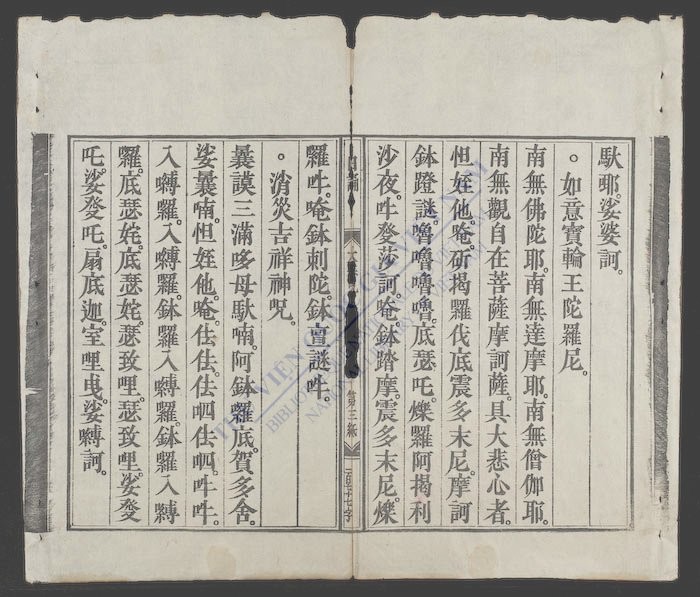 馱耶。娑婆訶。
。如意寶輪王陀羅尼。
南無佛陀耶。南無達摩耶。南無僧伽耶。
南無觀自在菩薩摩訶薩。具大悲心者。
怛姪他。唵。斫揭羅伐底震多末尼。摩訶
鉢蹬謎。嚕嚕嚕嚕。底瑟吒。爍羅阿揭利
沙夜。吽癹莎訶。唵。鉢踏摩。震多末尼。爍
羅吽。唵鉢剌陀。鉢亶謎吽。
。消災吉祥神咒。
曩謨三滿哆母馱喃。阿鉢囉底。賀多舍
娑曩喃。怛姪他。唵。佉佉。佉呬佉呬。吽吽。
入嚩囉。入嚩囉。鉢囉入嚩囉。鉢囉入嚩
囉。底瑟姹。底瑟姹。瑟致哩。瑟致哩。娑癹
吒。娑癹吒。扇底迦。室哩曳。娑嚩訶。
第三紙
THƯ VIỆN QUỐC GIA VIỆT NAM